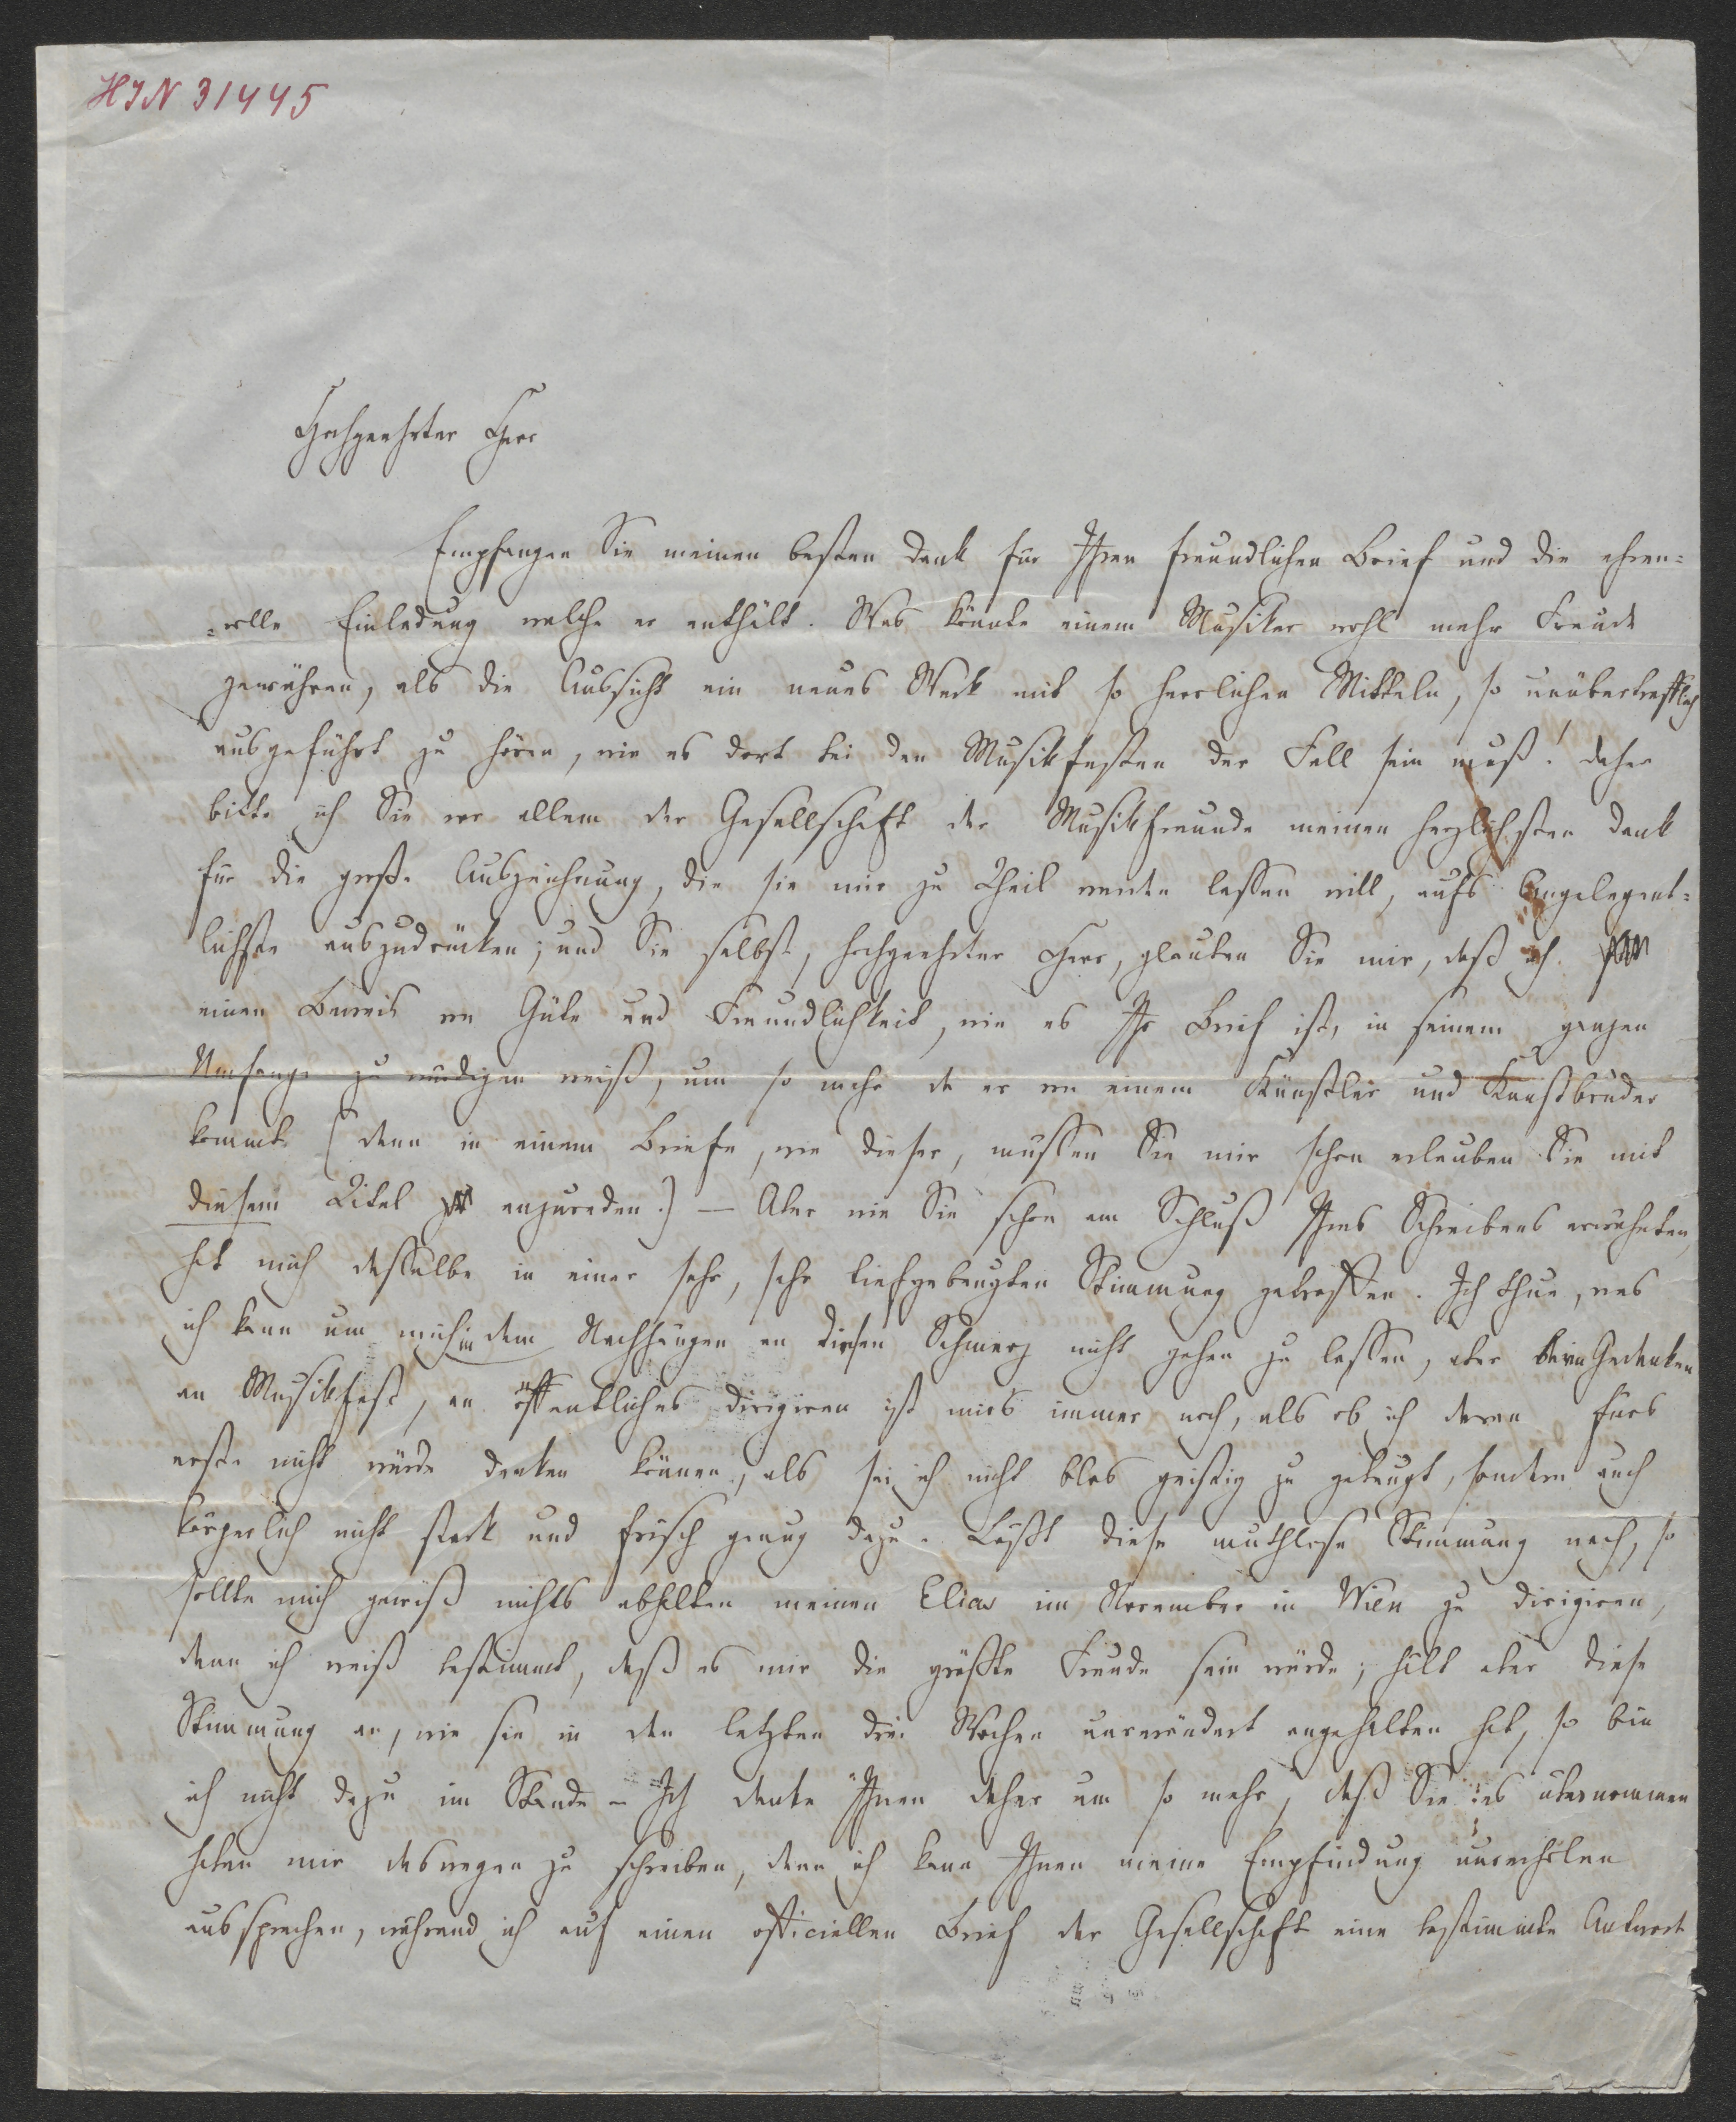 HIN 31445
Hochgeehrter Herr
Empfangen Sie meinen besten Dank für Ihren freundlichen Brief und die ehren=
=volle Einladung welche er enthält. Was könnte einem Musiker wohl mehr Freude
gewähren, als die Aussicht ein neues Werk mit so herrlichen Mitteln, so unübertrefflich
ausgeführt zu hören, wie es dort bei den Musikfesten der Fall sein muß! Daher
bitte ich Sie vor allem der Gesellschaft der Musikfreunde meinen herzlichsten Dank
für die große Auszeichnung, die sie mir zu Theil werden lassen will, aufs Angelegent=
lichste auszudrücken; und Sie selbst, hochgeehrter Herr, glauben Sie mir, daß ich
einen Beweis von Güte und Freundlichkeit, wie es Ihr Brief ist, in seinem ganzen
Umfange zu würdigen weiß, um so mehr da er von einem Künstler und Kunstbruder
kommt (denn in einem Briefe, wie dieser, müssen Sie mir schon erlauben Sie mit
diesem Titel anzureden.) — Aber wie Sie schon am Schluß Ihres Schreibens erwähnten,
hat mich dasselbe in einer sehr, sehr tiefgebeugten Stimmung getroffen. Ich thue, was
ich kann um mich in dem Nachhängen an diesen Schmerz nicht gehen zu lassen, aber beim Gedanken
an Musikfest, an öffentliches Dirigiren ist mirs immer noch, als ob ich daran fürs
erste nicht würde denken können, als sei ich nicht blos geistig zu gebeugt, sondern auch
körperlich nicht stark und frisch genug dazu. Läßt diese muthlose Stimmung nach, so
sollte mich gewiß nichts abhalten meinen Elias im November in Wien zu dirigiren,
denn ich weiß bestimmt, daß es mir die größte Freude sein würde; hält aber diese
Stimmung an, wie sie in den letzten drei Wochen unverändert angehalten hat, so bin
ich nicht dazu im Stande – Ich danke Ihnen daher um so mehr, daß Sie es übernommen
haben mir deswegen zu schreiben, denn ich kann Ihnen meine Empfindung unverholen
aussprechen, während ich auf einen officiellen Brief der Gesellschaft eine bestimmte Antwort